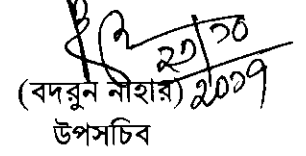 ২৩/১০
২০১৭
(বদরুন নাহার)
উপসচিব